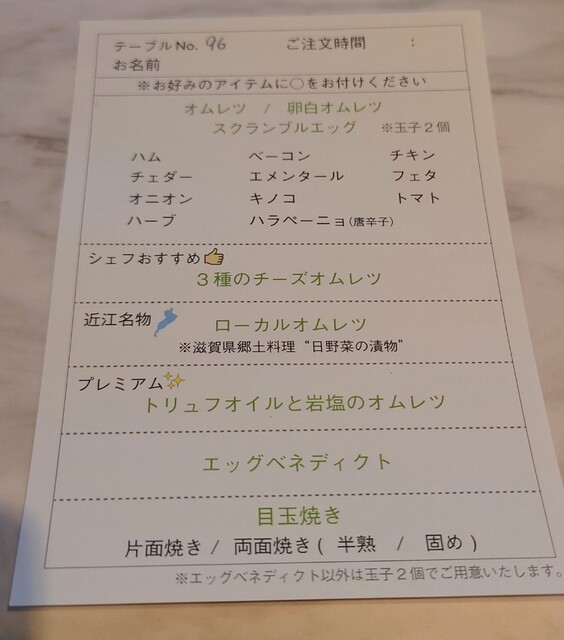 テーブルNo. 96 ご注文時間 :
お名前
※お好みのアイテムに○をお付けください
オムレツ / 卵白オムレツ
スクランブルエッグ ※玉子２個
ハム ベーコン チキン
チェダー エメンタール フェタ
オニオン キノコ トマト
ハーブ ハラペーニョ(唐辛子)
シェフおすすめ👍
３種のチーズオムレツ
近江名物 ローカルオムレツ
※滋賀県郷土料理“日野菜の漬物”
プレミアム✨
トリュフオイルと岩塩のオムレツ
エッグベネディクト
目玉焼き
片面焼き / 両面焼き ( 半熟 / 固め )
※エッグベネディクト以外は玉子２個でご用意いたします。